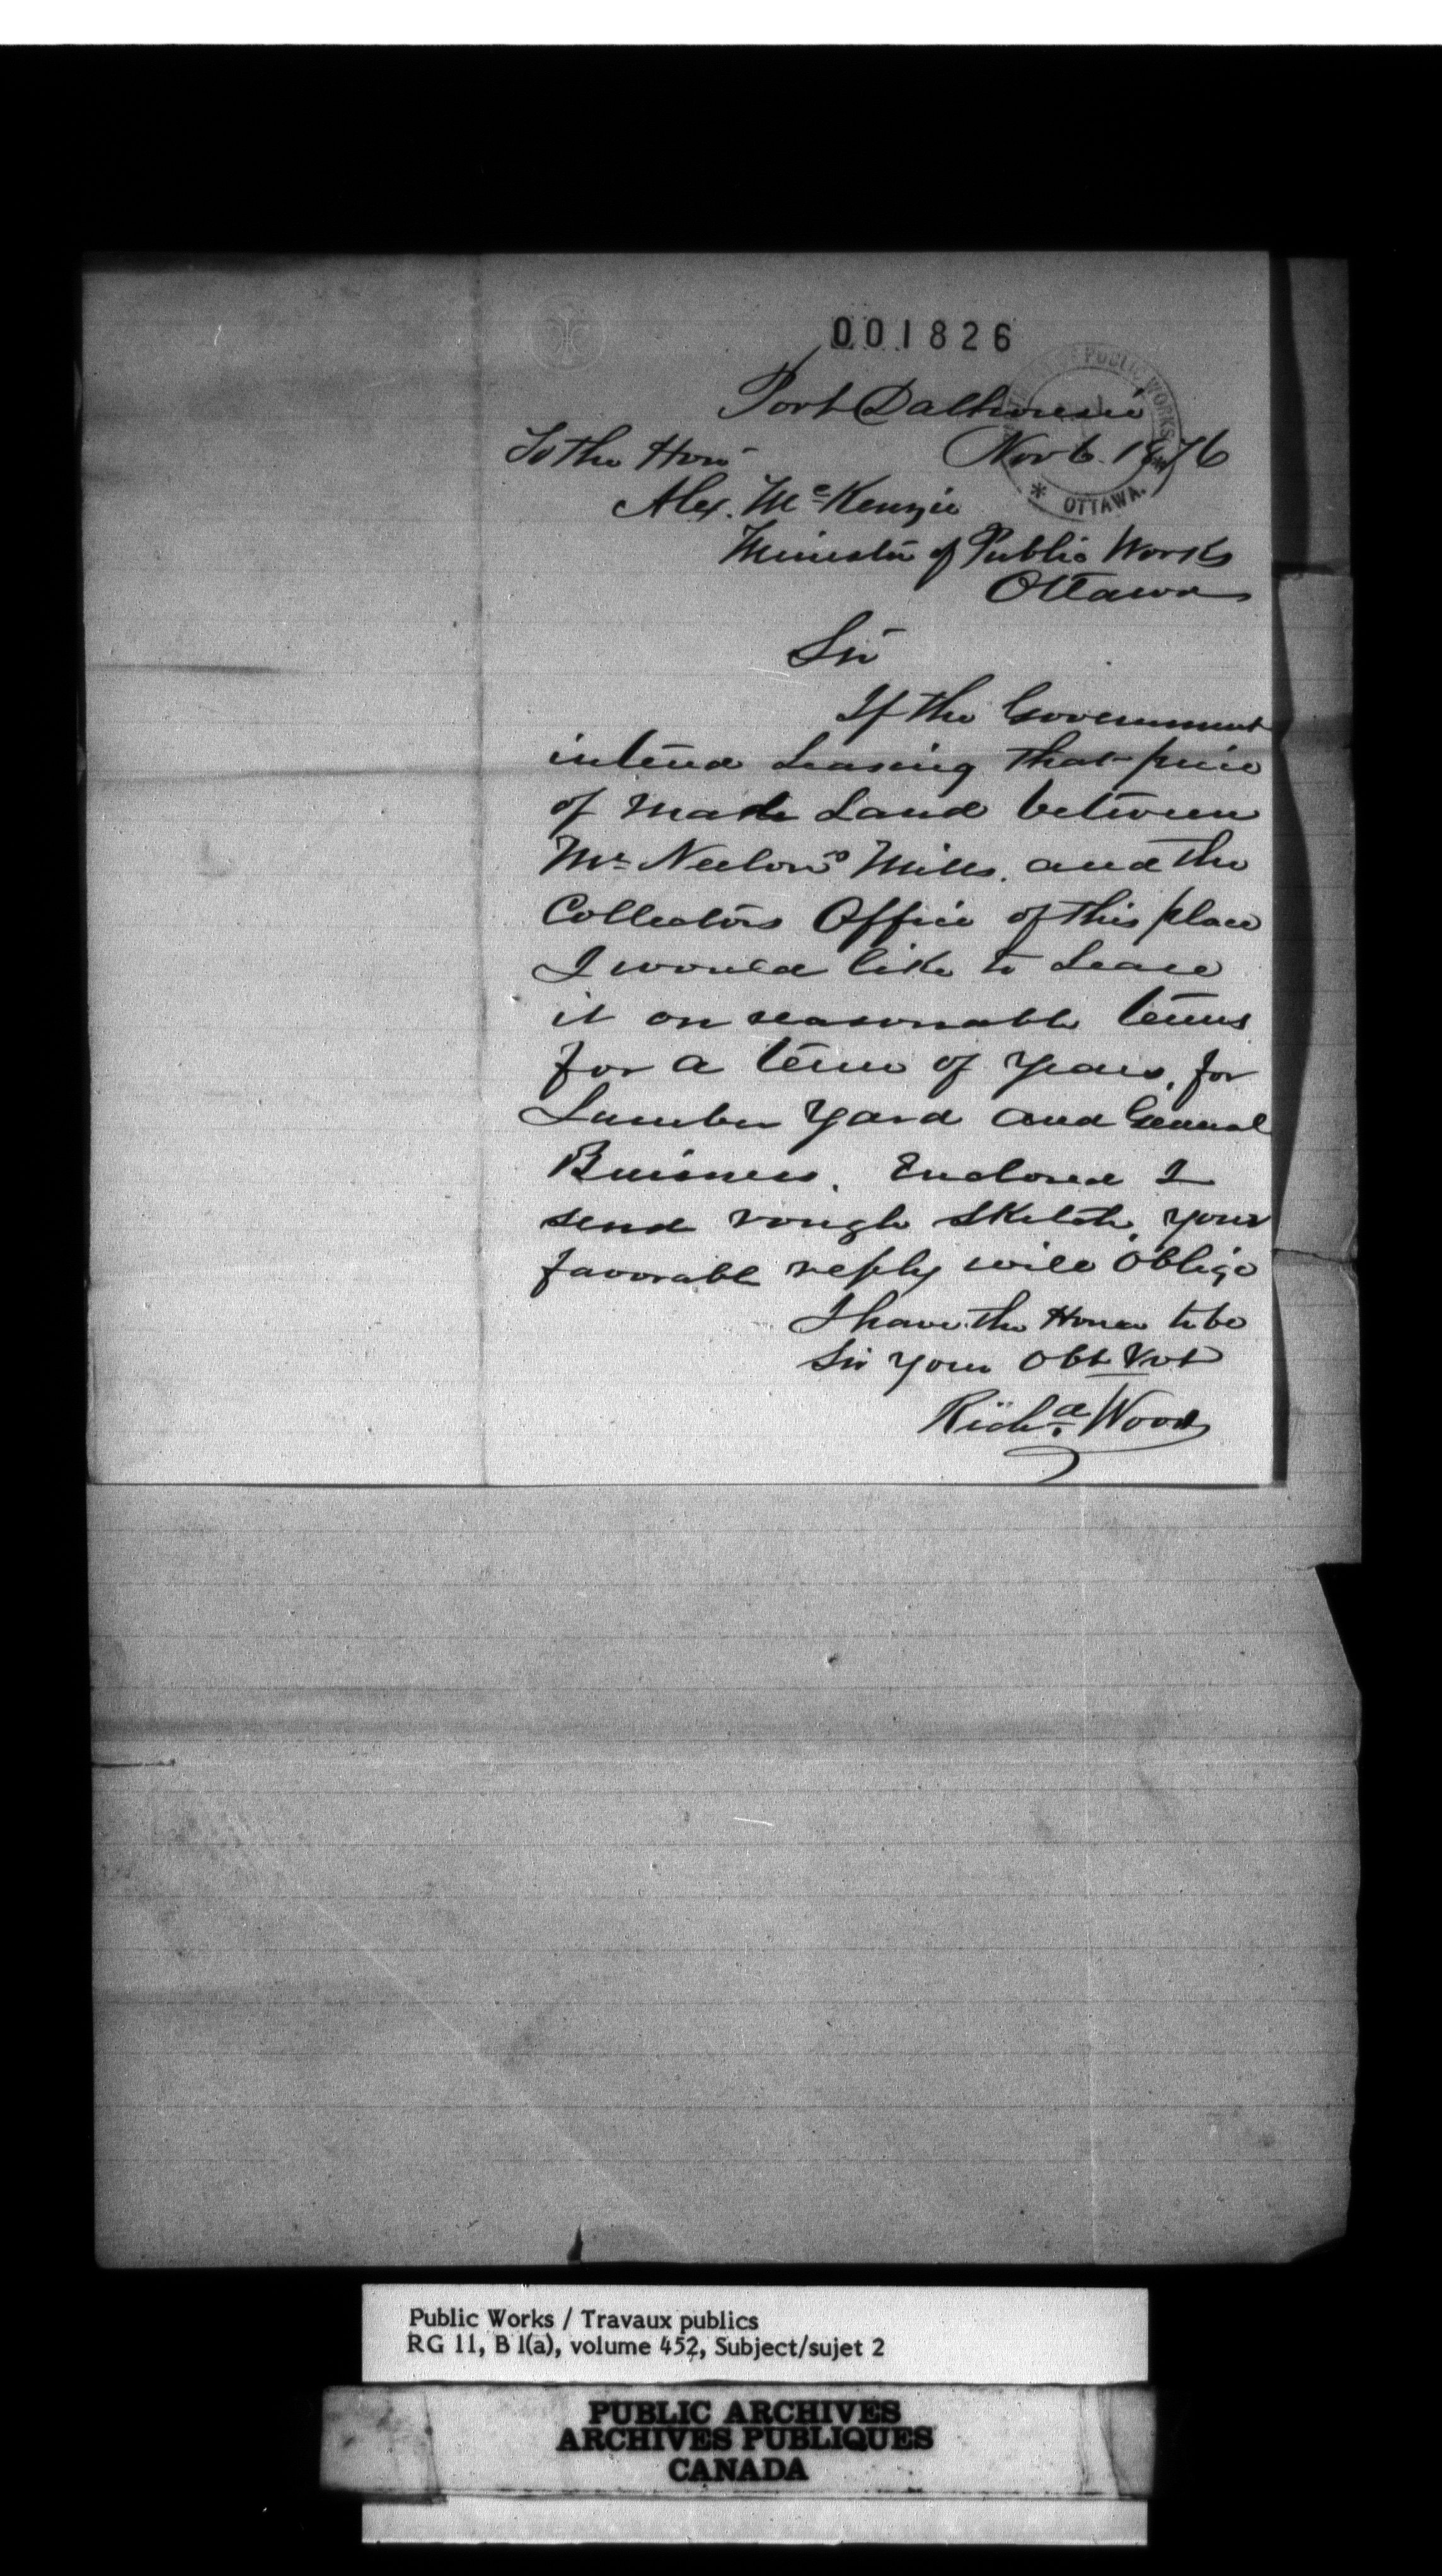 001826
PUBLIC WORKS
* OTTAWA.
Port Dalhousie
To the Hon Nov 6. 1876
Alex. McKenzie
Minister of Public Works
Ottawa
Sir
If the Government
intend Leasing that piece
of Made Land between
Mr Neelon's Mills. and the
Collectors Office of this place
I would like to Lease
it on reasonable terms
for a term of years, for
Lumber Yard and General
Buisness. Enclosed I
send rough sketch. your
favorable reply will oblige
I have the Honor to be
Sir your Obt Svt
Richd. Wood
Public Works / Travaux publics
RG 11, B 1(a), volume 452, Subject/sujet 2
PUBLIC ARCHIVES
ARCHIVES PUBLIQUES
CANADA